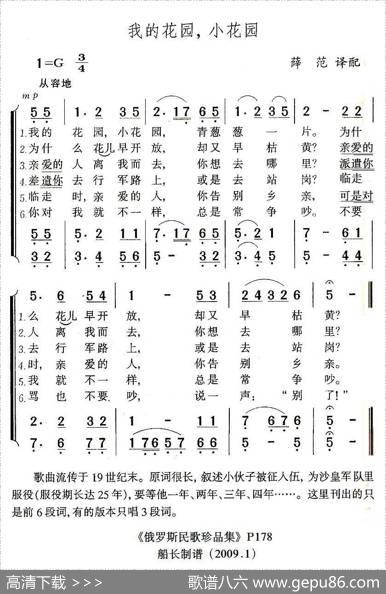 我的花园，小花园
1=G 3/4
薛 范 译配
从容地
mp
5 5 | 1· 2 3 5 | 2· 1 7 6 5 | 1· 2 3 5 | 2 - 2 2
1.我的 花 园，小花 园， 青葱 葱 一 片。 为什
2.为什 么 花儿 早开 放， 却又 早 枯 黄？ 亲爱的
3.亲爱的 人 离我 而 去， 你想 去 哪 里？ 派遣你
4.差遣你 去 行军路 上， 或是 去 站 岗？ 临走
5.临走 时，亲爱 的 人， 你告 别 乡 亲，可是对
6.你对 我 就 不 一 样， 总是 常 争 吵。 不要
5· 6 5 4 | 1 - 5 5 | 2 4 3 2 6 | 1 -
1.么 花儿 早开 放， 却又 早 枯 黄？
2.人 离我 而 去， 你想 去 哪 里？
3.去 行军 路 上， 或是 去 站 岗？
4.时，亲爱 的 人， 你告 别 乡 亲。
5.我 就 不 一 样， 总是 常 争 吵。
6.骂 也 不 要 吵， 说一 声：“别 了！”
歌曲流传于19世纪末。原词很长，叙述小伙子被征入伍，为沙皇军队里
服役（服役期长达25年），要等他一年、两年、三年、四年……。这里刊出的只
是前6段词，有的版本只唱3段词。
《俄罗斯民歌珍品集》P178
船长制谱（2009.1）
高清下载 >>> 歌谱八六 www.gepu86.com